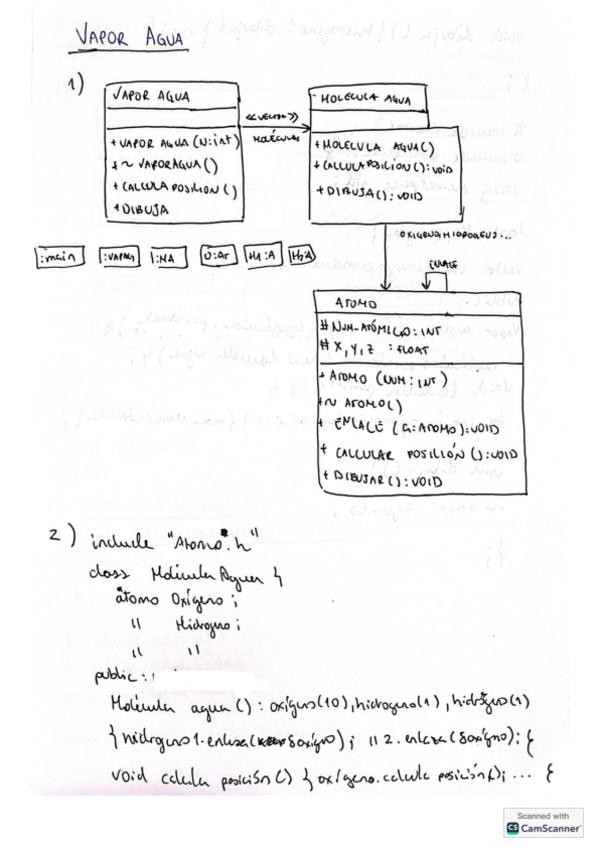 VAPOR AGUA
1)
VAPOR AGUA
+ VAPOR AGUA (N:int)
+ ~ VAPORAGUA ()
+ CALCULA POSICION ()
+ DIBUJA
<<VECTOR>>
MOLÉCULAS
MOLECULA AGUA
+ MOLECULA AGUA()
+ CALCULAPOSICION():VOID
+ DIBUJA(): VOID
:main
:VAPAG
1:MA
O:AT
H1:A
H2:A
ENLACE
ATOMO
# NUM-ATÓMICO: INT
# X, Y, Z : FLOAT
+ ATOMO (NUM: INT)
+ ~ ATOMO()
+ ENLACE (a: ATOMO): VOID
+ CALCULAR POSICIÓN (): VOID
+ DIBUJAR(): VOID
2) include "Atomo.h"
class Molécula Agua {
átomo Oxígeno ;
" Hidrogeno ;
" "
public :
Molécula agua () : oxígeno(10), hidrogeno(1), hidrógeno(1)
{ hidrogeno1.enlaza( &oxígno) ; " 2. enlaza (&oxígno); {
void calcula posición () { oxígeno.calcula posición(); ... {
Scanned with
CS CamScanner